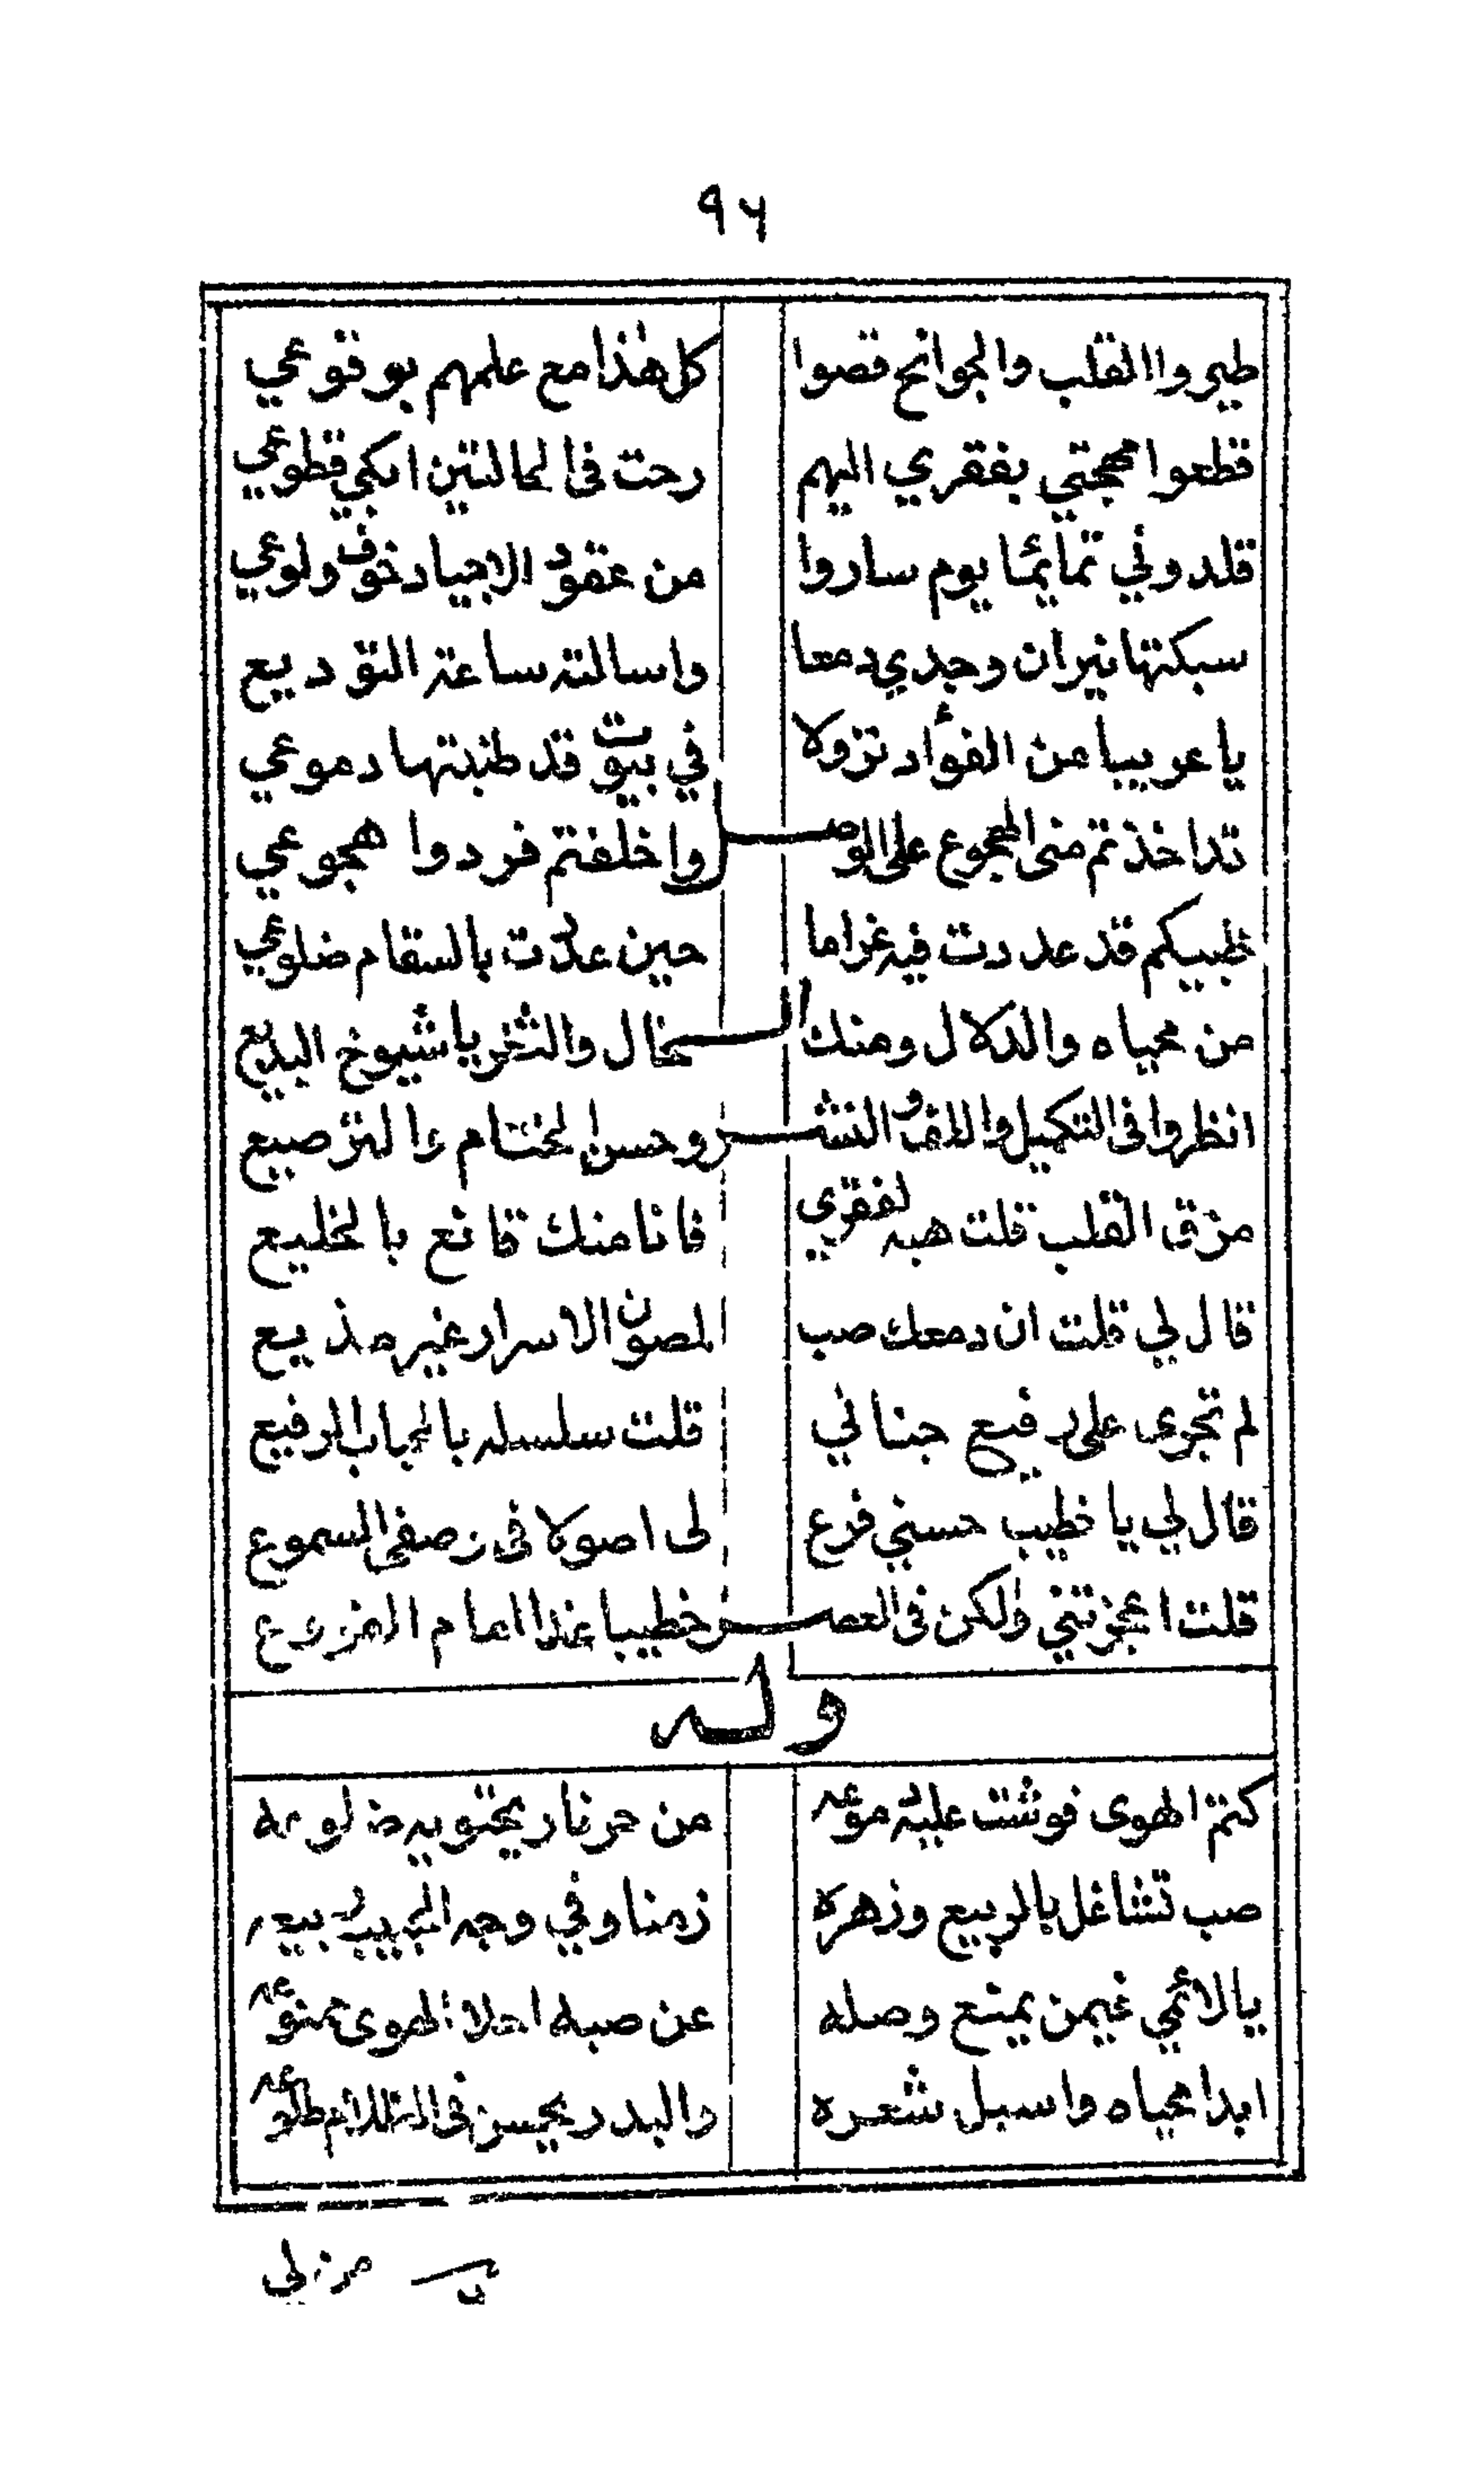 ٩٦
طيروا القلب والجوانح قصوا كل هذا مع علمهم بوقوعي
قطعوا مهجتي بفقري اليهم رحت فى الحالتين ابكي قطوعي
قلدوني تمائما يوم ساروا من عقود الاجياد خوف ولوعي
سبكتها نيران وجدي دمعا واسالته ساعة التوديع
يا عريبا من الفؤاد نزولا في بيوت قد طنبتها دموعي
قد اخذتم منى الهجوع على الوصل واخلفتم فردوا هجوعي
ظبيكم قد عددت فيه غراما حين عدت بالسقام ضلوعي
من محياه والدلال ومنك الخال والثغر يا شيوخ البديع
انظروا فى التكميل واللف والنشر وحسن الختام والترصيع
مزق القلب قلت هبه لفقري فانا منك قانع بالخليع
قال لي قلت ان دمعك صب لمصون الاسرار غير مذيع
لم تجرى على رفيع جنابي قلت سلسله بالحباب الرفيع
قال لي يا خطيب حسني فرع لى اصولا فى رصفى المسموع
قلت اعجزتني ولكن فى العصر خطيبا غدا امام الفروع
وله
كتم الهوى فوشت عليه دموعه من حر نار يحتويه ضلوعه
صب تشاغل بالربيع وزهره زمنا وفي وجه الحبيب ربيعه
يا لائمي فيمن يمنع وصله عن صبه احلا الهوى ممنوعه
ابدا محياه واسبل شعره والبدر يحسن فى الظلام طلوعه
من لي